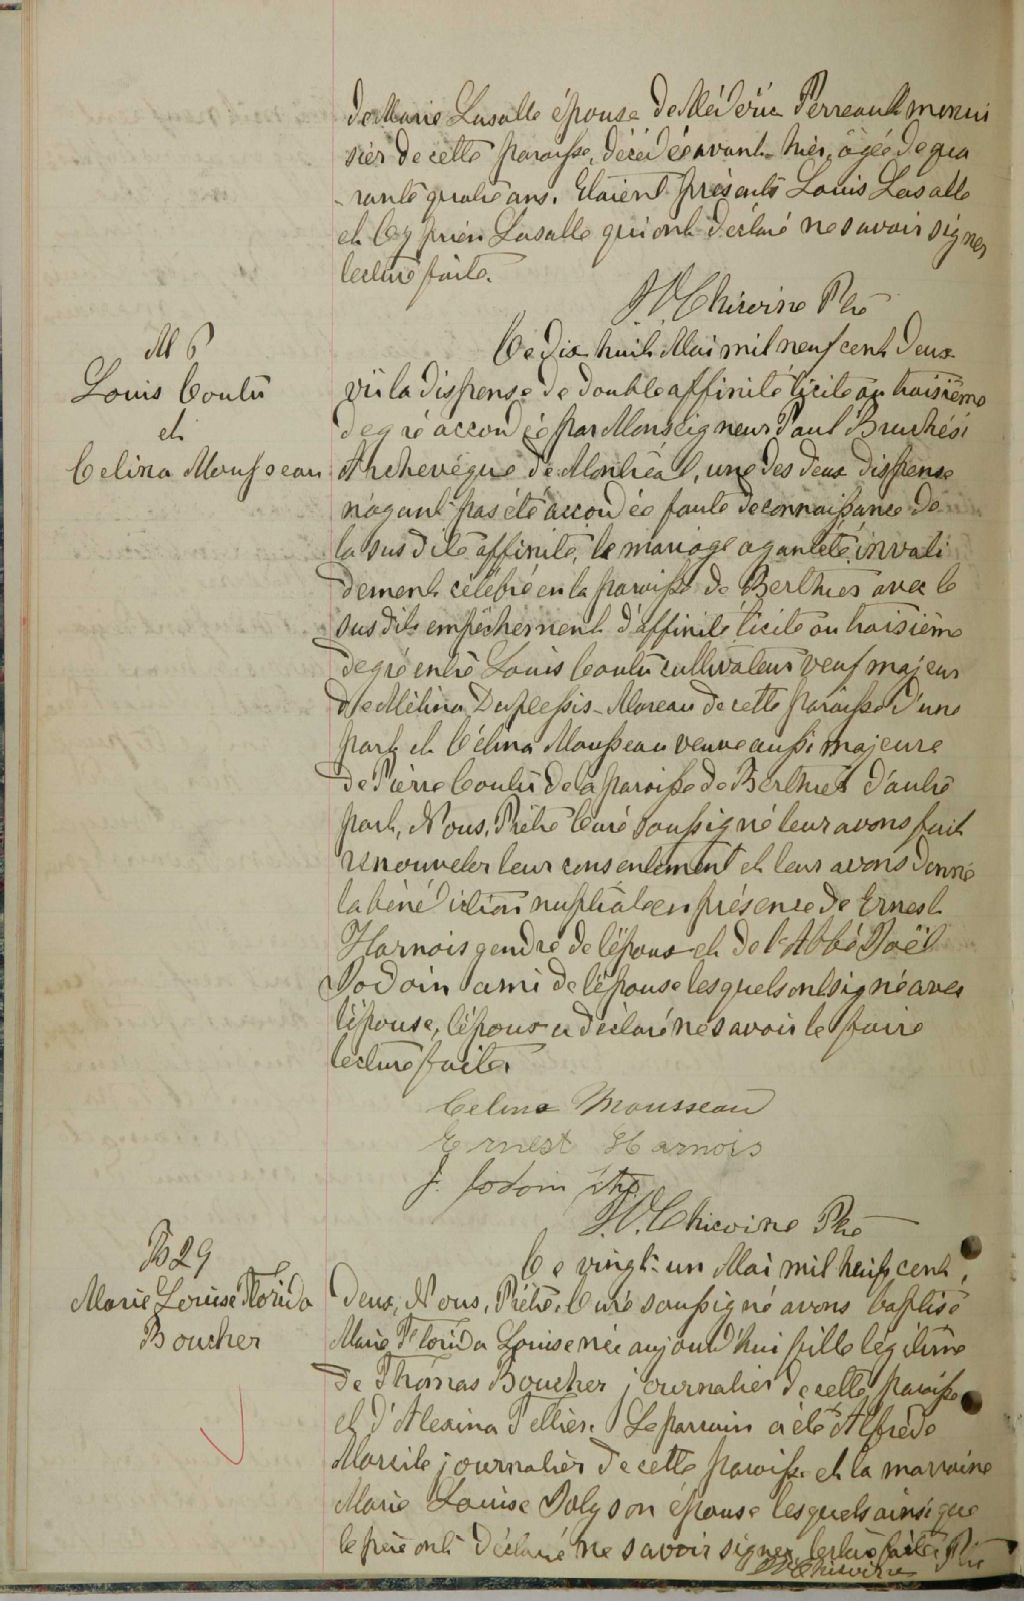 de Marie Lasalle épouse de Médéric Perreault menui
sier de cette paroisse, décédée avant-hier, âgée de qua
-rante quatre ans. Etaient présents Louis Lasalle
et Cyprien Lasalle qui ont déclaré ne savoir signer
lecture faite.
Chicoine Ptre
M 6
Louis Coutu
et
Celina Mousseau
Ce dix huit Mai mil neuf cent deux
vu la dispense de double affinité licite au troisième
degré accordée par Monseigneur Paul Bruchési
Archevêque de Montréal, une des deux dispense
n'ayant pas été accordée faute de connaissance de
la susdite affinité, le mariage ayant été invali
dement célébré en la paroisse de Berthier avec le
susdit empêchement d'affinité licite au troisième
degré entre Louis Coutu cultivateur veuf majeur
de Mélina Duplessis-Moreau de cette paroisse d'une
part, et Célina Mousseau veuve aussi majeure
de Pierre Coutu de la paroisse de Berthier d'autre
part, Nous, Prêtre Curé soussigné leur avons fait
renouveler leur consentement et leur avons donné
la bénédiction nuptiale en présence de Ernest
Harnois gendre de l'époux et de l'Abbé Joël
Jodoin ami de l'épouse lesquels ont signé avec
l'épouse, l'époux a déclaré ne savoir le faire
lecture faite.
Celina Mousseau
Ernest Harnois
J. Jodoin Ptre
Chicoine Ptre
B 29
Marie Louise Florida
Boucher
Ce vingt-un Mai mil neuf cent
deux, Nous, Prêtre, Curé soussigné avons baptisé
Marie Florida Louise née aujourd'hui fille légitime
de Thomas Boucher journalier de cette paroisse
et d'Alexina Tellier. Le parrain a été Alfred
Marcile journalier de cette paroisse et la marraine
Marie Louise Joly son épouse lesquels ainsi que
le père ont déclaré ne savoir signer lecture faite.
Chicoine Ptre